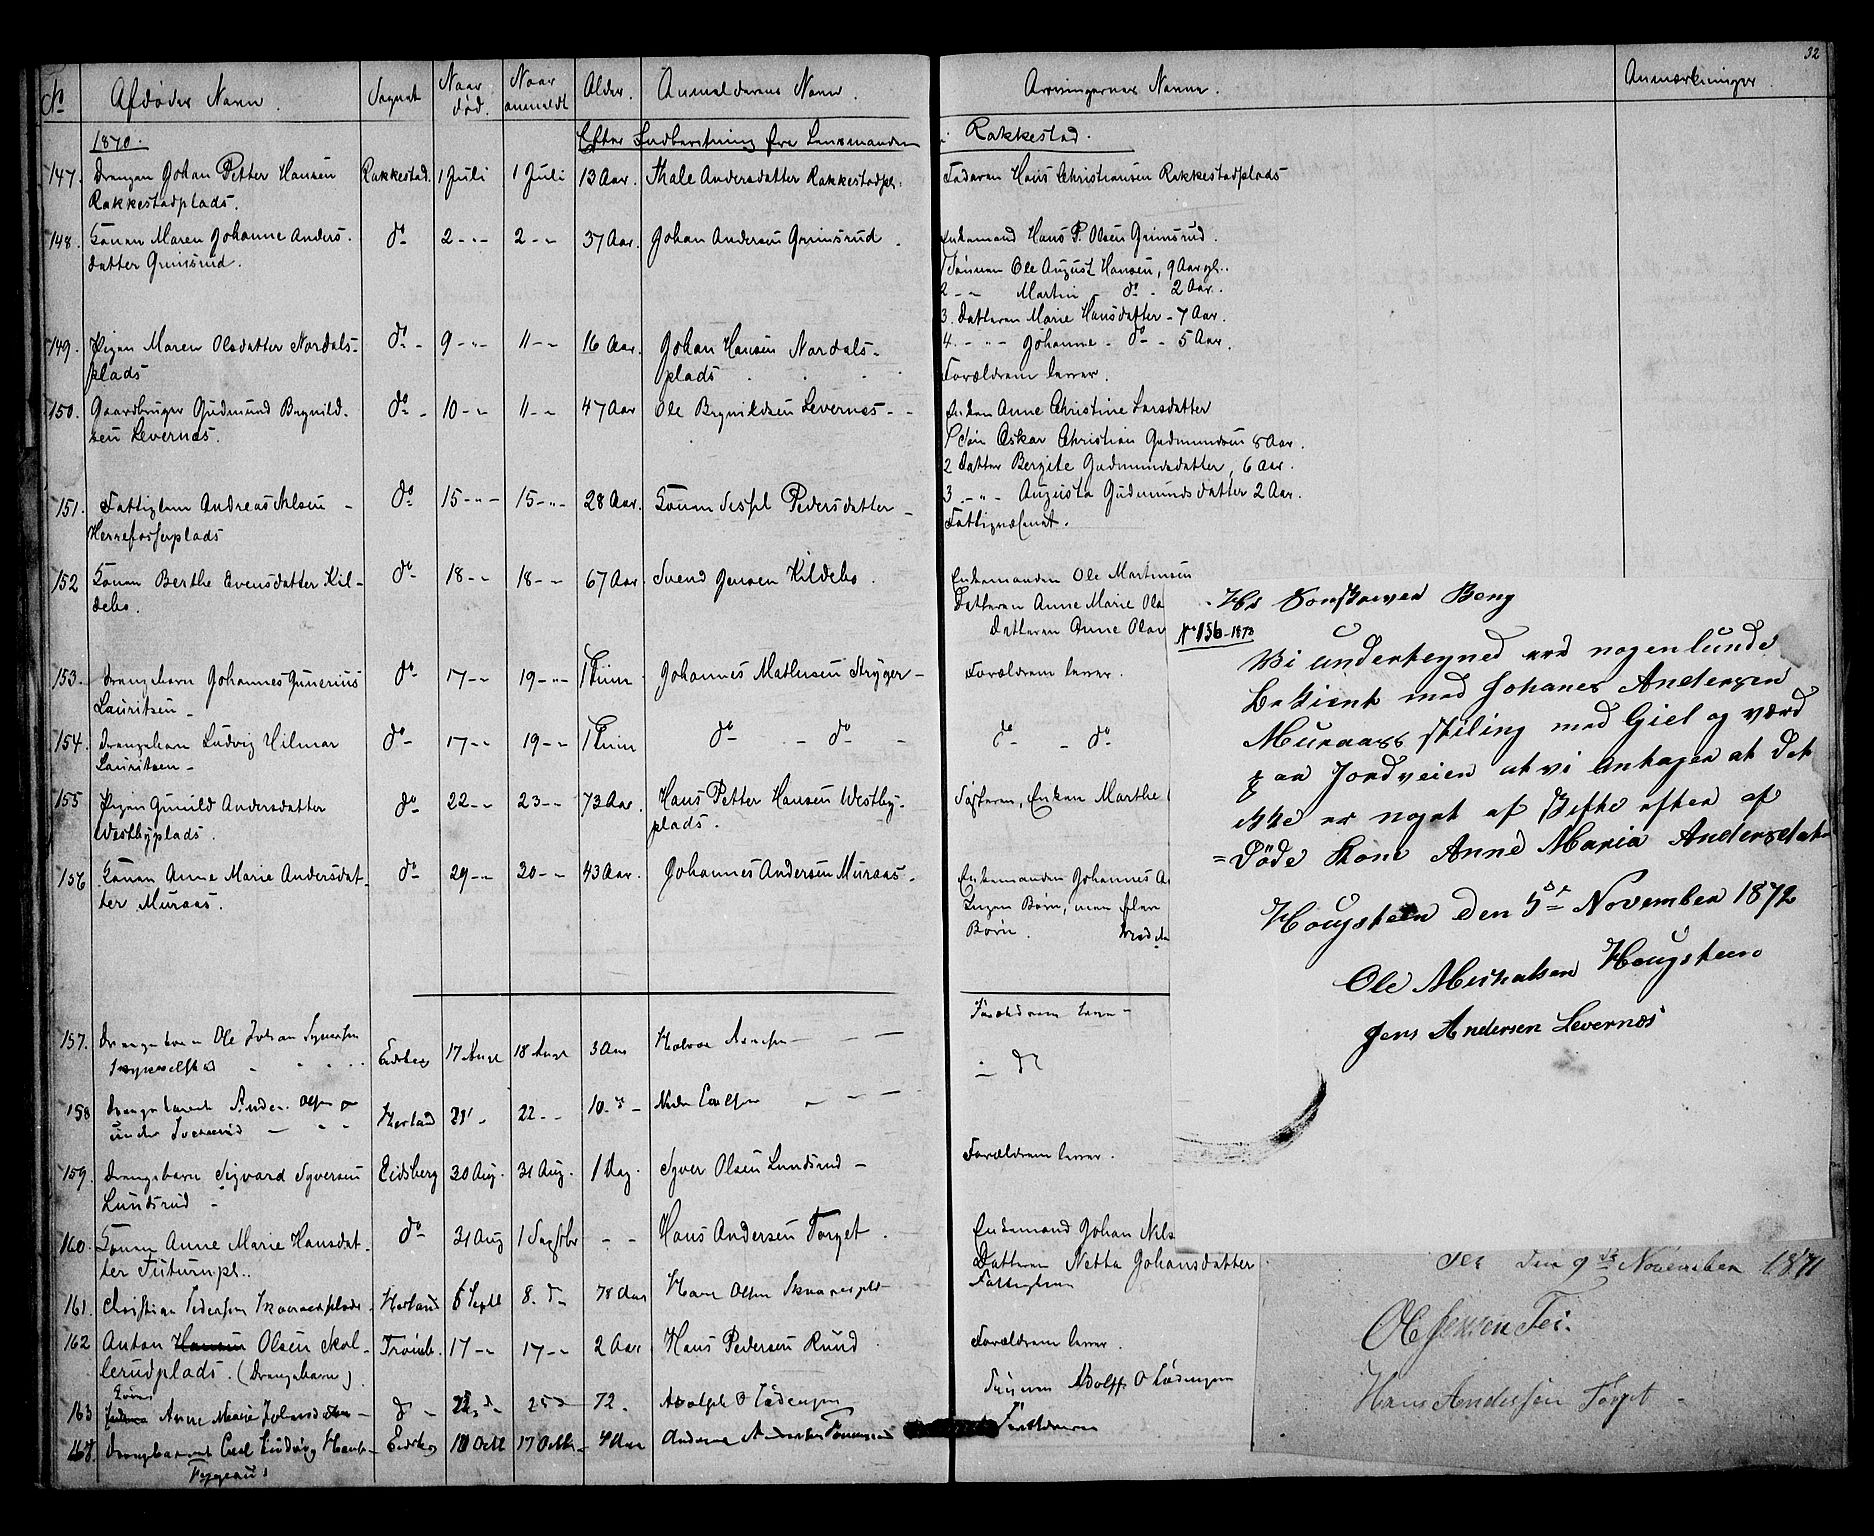 32
No Afdødes Navn. Sognet Naar død. Naar anmeldt Alder. Anmelderens Navn. Arvingernes Navne. Anmærkninger
1870. Efter Indberetning fra Lensmanden i Rakkestad.
147. Drengen Johan Petter Hansen Rakkestad. 1 Juli 1 Juli 13 Aar. Thale Andersdatter Rakkestadpl. Faderen Hans Christiansen Rakkestadplads
Rakkestadplads.
148. Konen Maren Johanne Anders- do 2 - " - 2 - " 37 Aar. Johan Andersen Grimsrud. Enkemand Hans P. Olsen Grimsrud.
datter Grimsrud.
1 Sønnen Ole August Hansen, 9 Aar gl.
2 - " Martin - do - 2 Aar.
3. Datteren Marie Hansdatter - 7 Aar.
4. - " - Johanne - do - 5 Aar.
149. Pigen Maren Olsdatter Nordals- do 9 - " - 11 - " 16 Aar. Johan Hansen Nordals-
plads plads Forældrene lever.
150. Gaardbruger Gudmund Brynild- do 10 - " 11 - " 47 Aar Ole Brynildsen Levernæs - Enken Anne Christine Larsdatter
sen Levernæs.
1 Søn Oskar Christian Gudmundsen 8 Aar.
2 Datter Bergite Gudmundsdatter, 6 Aar.
3 - " - Augusta Gudmundsdatter 2 Aar.
151. Fattiglem Andreas Nilsen - do 15 - " - 15 - " - 28 Aar. Konen Pedersdatter - Fattigvæsenet.
Herrefosserplads
152 Konen Berthe Evensdatter Kil- do 18 - " 18 - " 67 Aar Svend Jensen Kildebo. Enkemanden Ole Martinsen
debo.
Datteren Anne Marie Ols
Datteren Anne Olav
153. Drengebarn Johannes Gunerius do 17 - " 19 - " - 1 Time Johannes Mathesen Stryger - Forældrene lever.
Lauritsen -
154. Drengebarn Ludvig Hilmar do 17 - " 19 - " 1 Time do - do - do - do
Lauritsen -
155 Pigen Gunild Andersdatter do 22 - " 23 - " 73 Aar. Hans Petter Hansen Westby- Søsteren, Enken Marthe
Westbyplads. plads.
156 Konen Anne Marie Andersdat- do 29 - " 30 - " 43 Aar. Johannes Andersen Muraas. Enkemanden Johannes A
ter Muraas.
Ingen Børn, men flere
Børn.
157. Drengebarn Ole Johan Syversen Eidsberg 17 Augt 18 Augt 3 Aar Halvor Forældrene lever -
158 Drengebarnet Olsen Herland 21 - 22 - " 10 - " - do
under
159. Drengebarn Sigvard Syversen Eidsberg 30 Aug. 31 Aug. 1 Dag. Syver Olsen Lundsrud - Forældrene lever.
Lundsrud -
160. Konen Anne Marie Hansdat- do 31 Aug 1 Septbr - - Hans Andersen Torget. Enkemand Johan Nils
ter
Datteren Netta Johansdatter
161. Christian Pedersen Herland 6 Septb 8. do 78 Aar Olsen Fattiglem
162 Anton Hansen Olsen Skol- Trømb. 17 - " 17 - " 2 Aar Hans Pedersen Ruud Forældrene lever.
lerudplads. (Drengebarn)
163 Konen Anne Marie do - 22 do 25 do 72. Adolph O Sønnen Adolff O
164. Drengebarnet Carl Ludvig Eidsberg 10 Octb 17 Octb 4 Aar Forældrene
Hr Sorenskriver Berg
No 156-1870
Vi undertegned er nogenlunde
bekient med Johanes Andersen
Muraass stiling med Giel og værd
paa Jordveien at vi antager at det
ikke er noget at skifte efter af
=døde kone Anne Maria Andersdatr
Hougsteen den 5te November 1872
Ole Hougsteen
Jens Andersen Levernæs
den 9de November 1871
Ole Jensen
Hans Andersen Torget